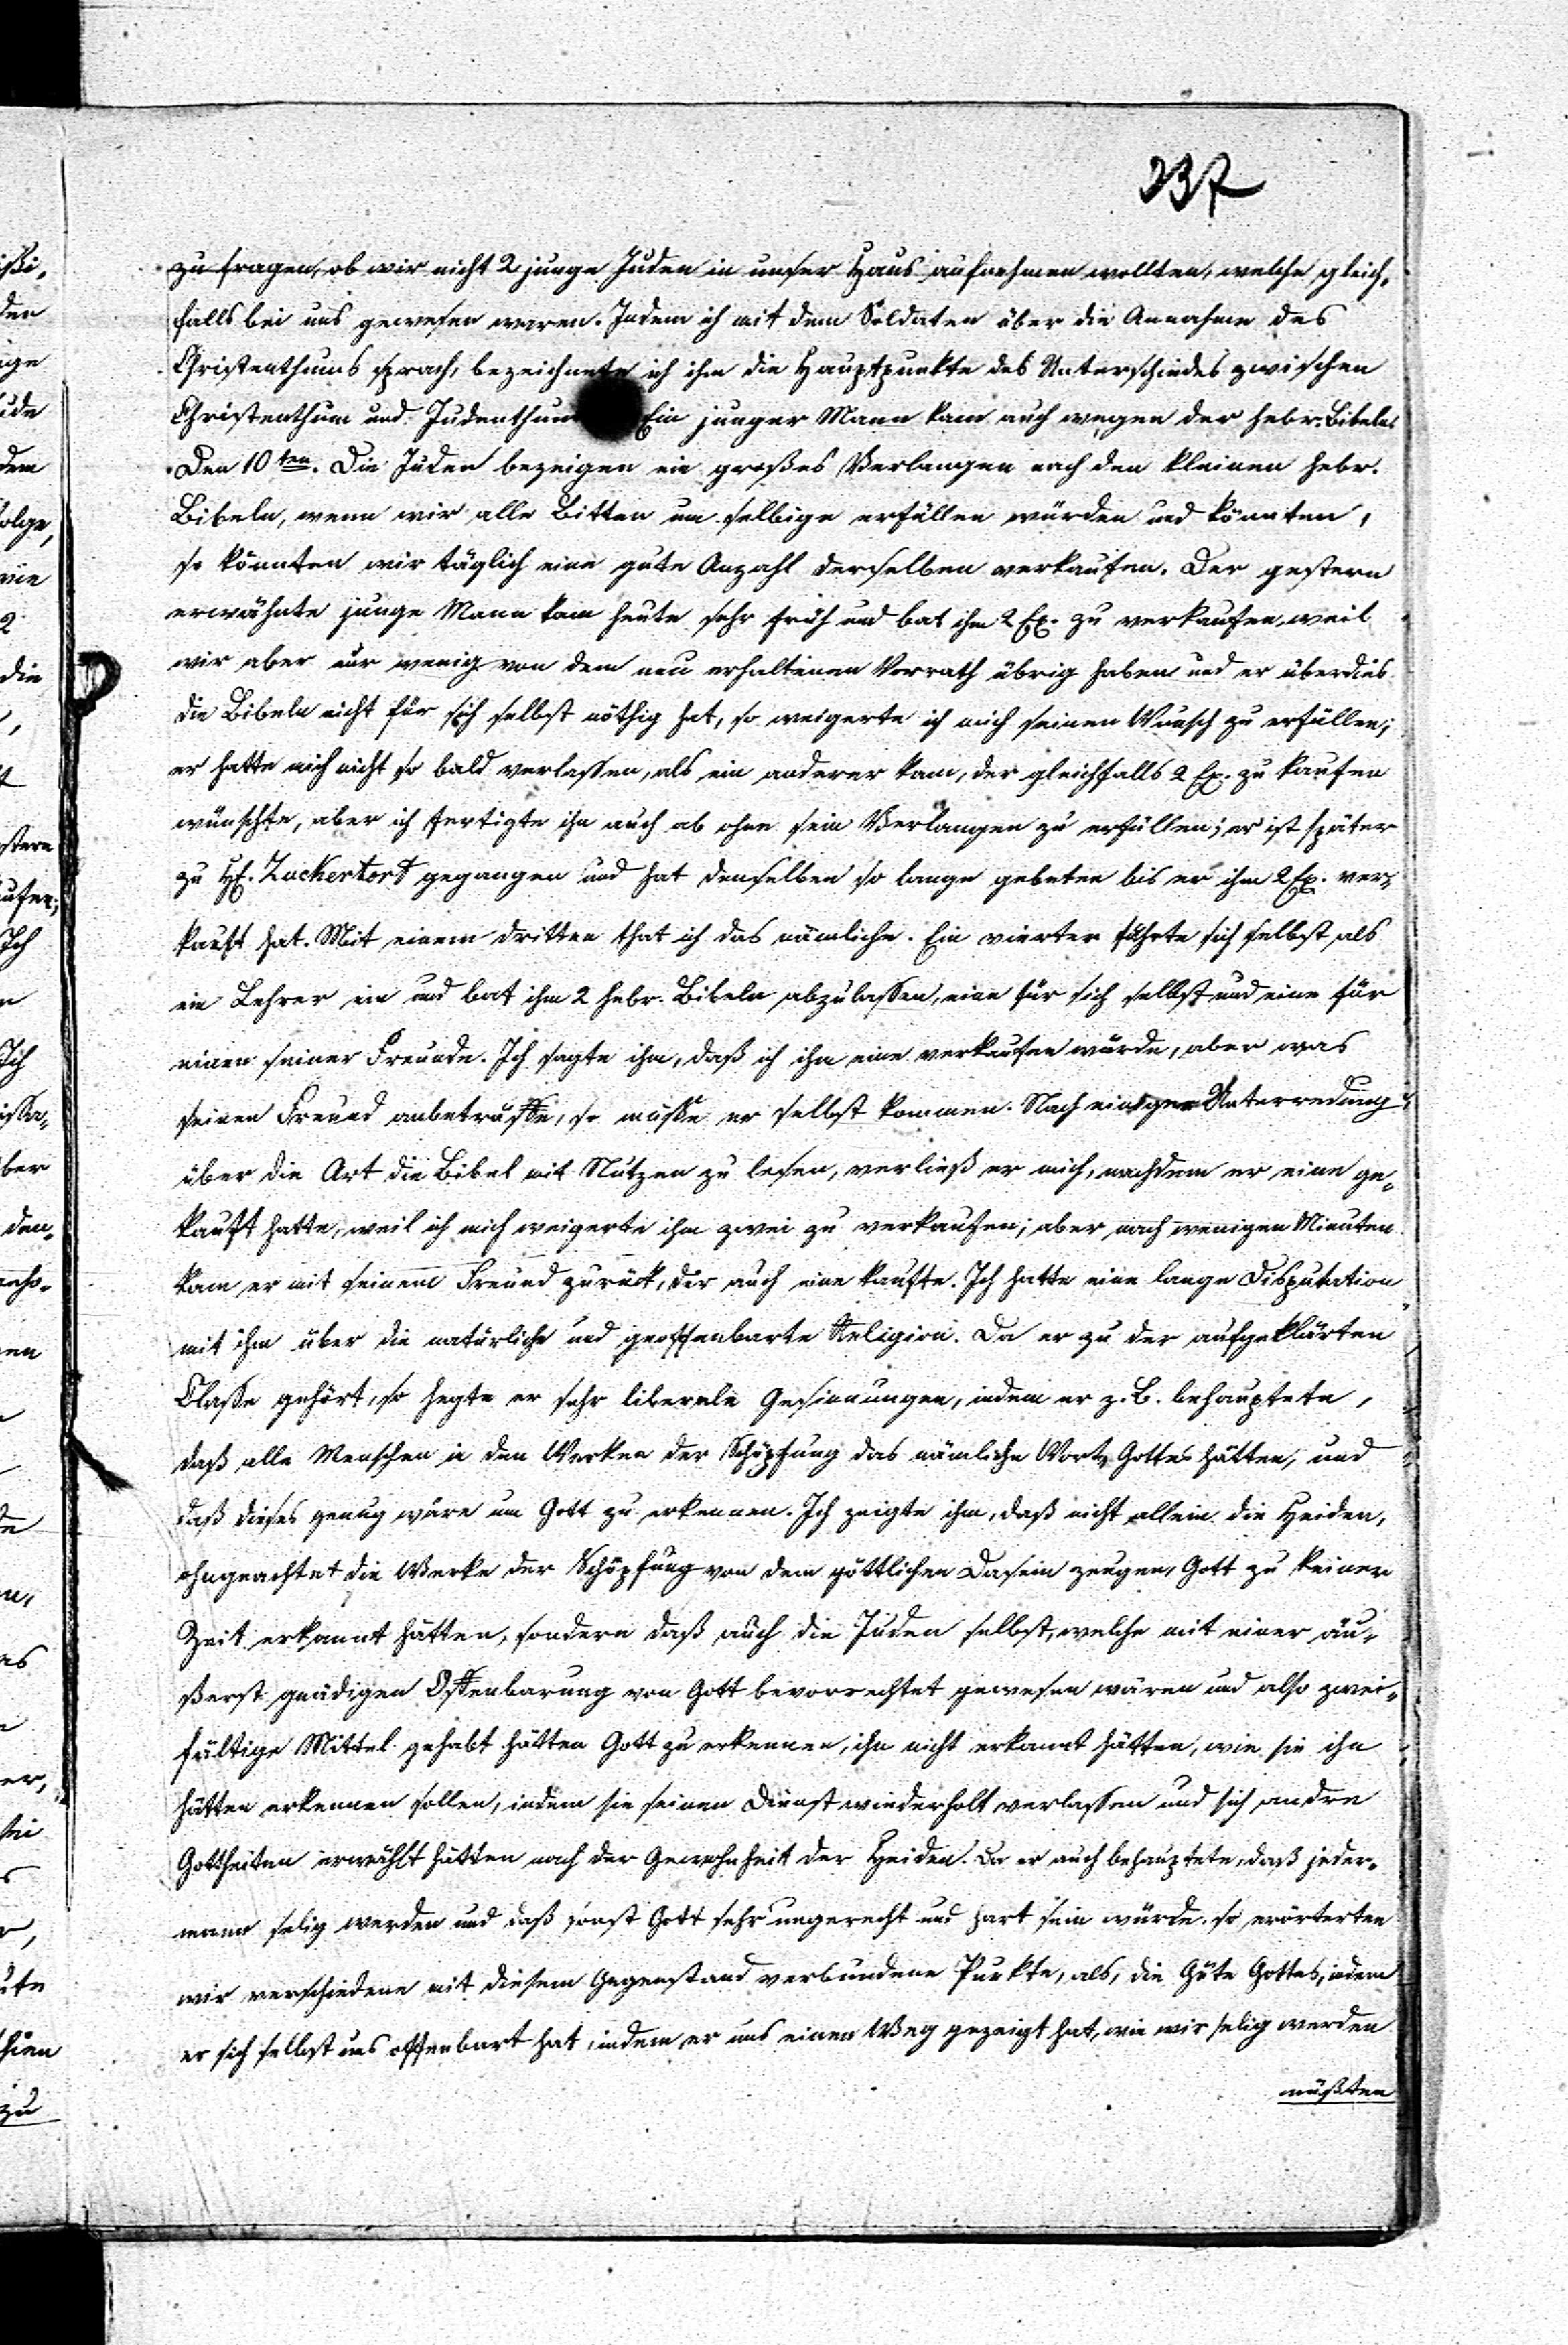 237
zu fragen, ob wir nicht 2 junge Juden in unser Haus aufnehmen wollten, welche gleich„
falls bei uns gewesen waren. Indem ich mit dem Soldaten über die Annahme des
Christenthums sprach, bezeichnete ich ihm die Hauptpunkte des Unterschiedes zwischen
Christenthum und Judenthum Ein junger Mann kam auch wegen der hebr. Bibeln
Den 10ten. Die Juden bezeigen ein großes Verlangen nach den kleinen hebr.
Bibeln, wenn wir alle Bitten um selbige erfüllen würden und könnten,
so könnten wir täglich eine gute Anzahl derselben verkaufen. Der gestern
erwähnte junge Mann kam heute sehr früh und bat ihm 2 Ex. zu verkaufen, weil
wir aber nur wenig von dem neu erhaltenen Vorrath übrig haben und er überdies
die Bibeln nicht für sich selbst nöthig hat, so weigerte ich mich seinen Wunsch zu erfüllen;
er hatte mich nicht so bald verlassen, als ein anderer kam, der gleichfalls 2 Ex. zu kaufen
wünschte, aber ich fertigte ihn auch ab ohne sein Verlangen zu erfüllen; er ist später
zu H. Zuckertort gegangen und hat denselben so lange gebeten bis er ihm 2 Ex. ver„
kauft hat. Mit einem dritten that ich das nämliche. Ein vierter führte sich selbst als
ein Lehrer ein und bat ihm 2 hebr. Bibeln abzulassen, eine für sich selbst und eine für
einen seiner Freunde. Ich sagte ihm, daß ich ihm eine verkaufen würde, aber was
seinen Freund anbeträffe, so müsse er selbst kommen. Nach einiger Unterredung
über die Art die Bibel mit Nutzen zu lesen, verließ er mich, nachdem er eine ge„
kauft hatte, weil ich mich weigerte ihm zwei zu verkaufen; aber nach wenigen Minuten
kam er mit seinem Freund zurück, der auch eine kaufte. Ich hatte eine lange Disputation
mit ihm über die natürliche und geoffenbarte Religion. Da er zu der aufgeklärten
Classe gehört, so hegte er sehr liberale Gesinnungen, indem er z. B. behauptete,
daß alle Menschen in den Werken der Schöpfung das nämliche Wort Gottes hätten, und
daß dieses genug wäre um Gott zu erkennen. Ich zeigte ihm, daß nicht allein die Heiden,
ohngeachtet die Werke der Schöpfung von dem göttlichen Dasein zeugen, Gott zu keiner
Zeit erkannt hätten, sondern daß auch die Juden selbst, welche mit einer äu„
ßerst gnädigen Offenbarung von Gott bevorrechtet gewesen wären und also zwei„
fältige Mittel gehabt hätten Gott zu erkennen, ihn nicht erkannt hätten, wie sie ihn
hätten erkennen sollen, indem sie seinen Dienst wiederholt verlassen und sich andre
Gottheiten erwählt hätten nach der Gewohnheit der Heiden. Da er auch behauptete, daß jeder„
mann selig werden und daß sonst Gott sehr ungerecht und hart sein würde, so erörterten
wir verschiedene mit diesem Gegenstand verbundene Punkte, als, die Güte Gottes, indem
er sich selbst uns offenbart hat, indem er uns einen Weg gezeigt hat, wie wir selig werden
müßten